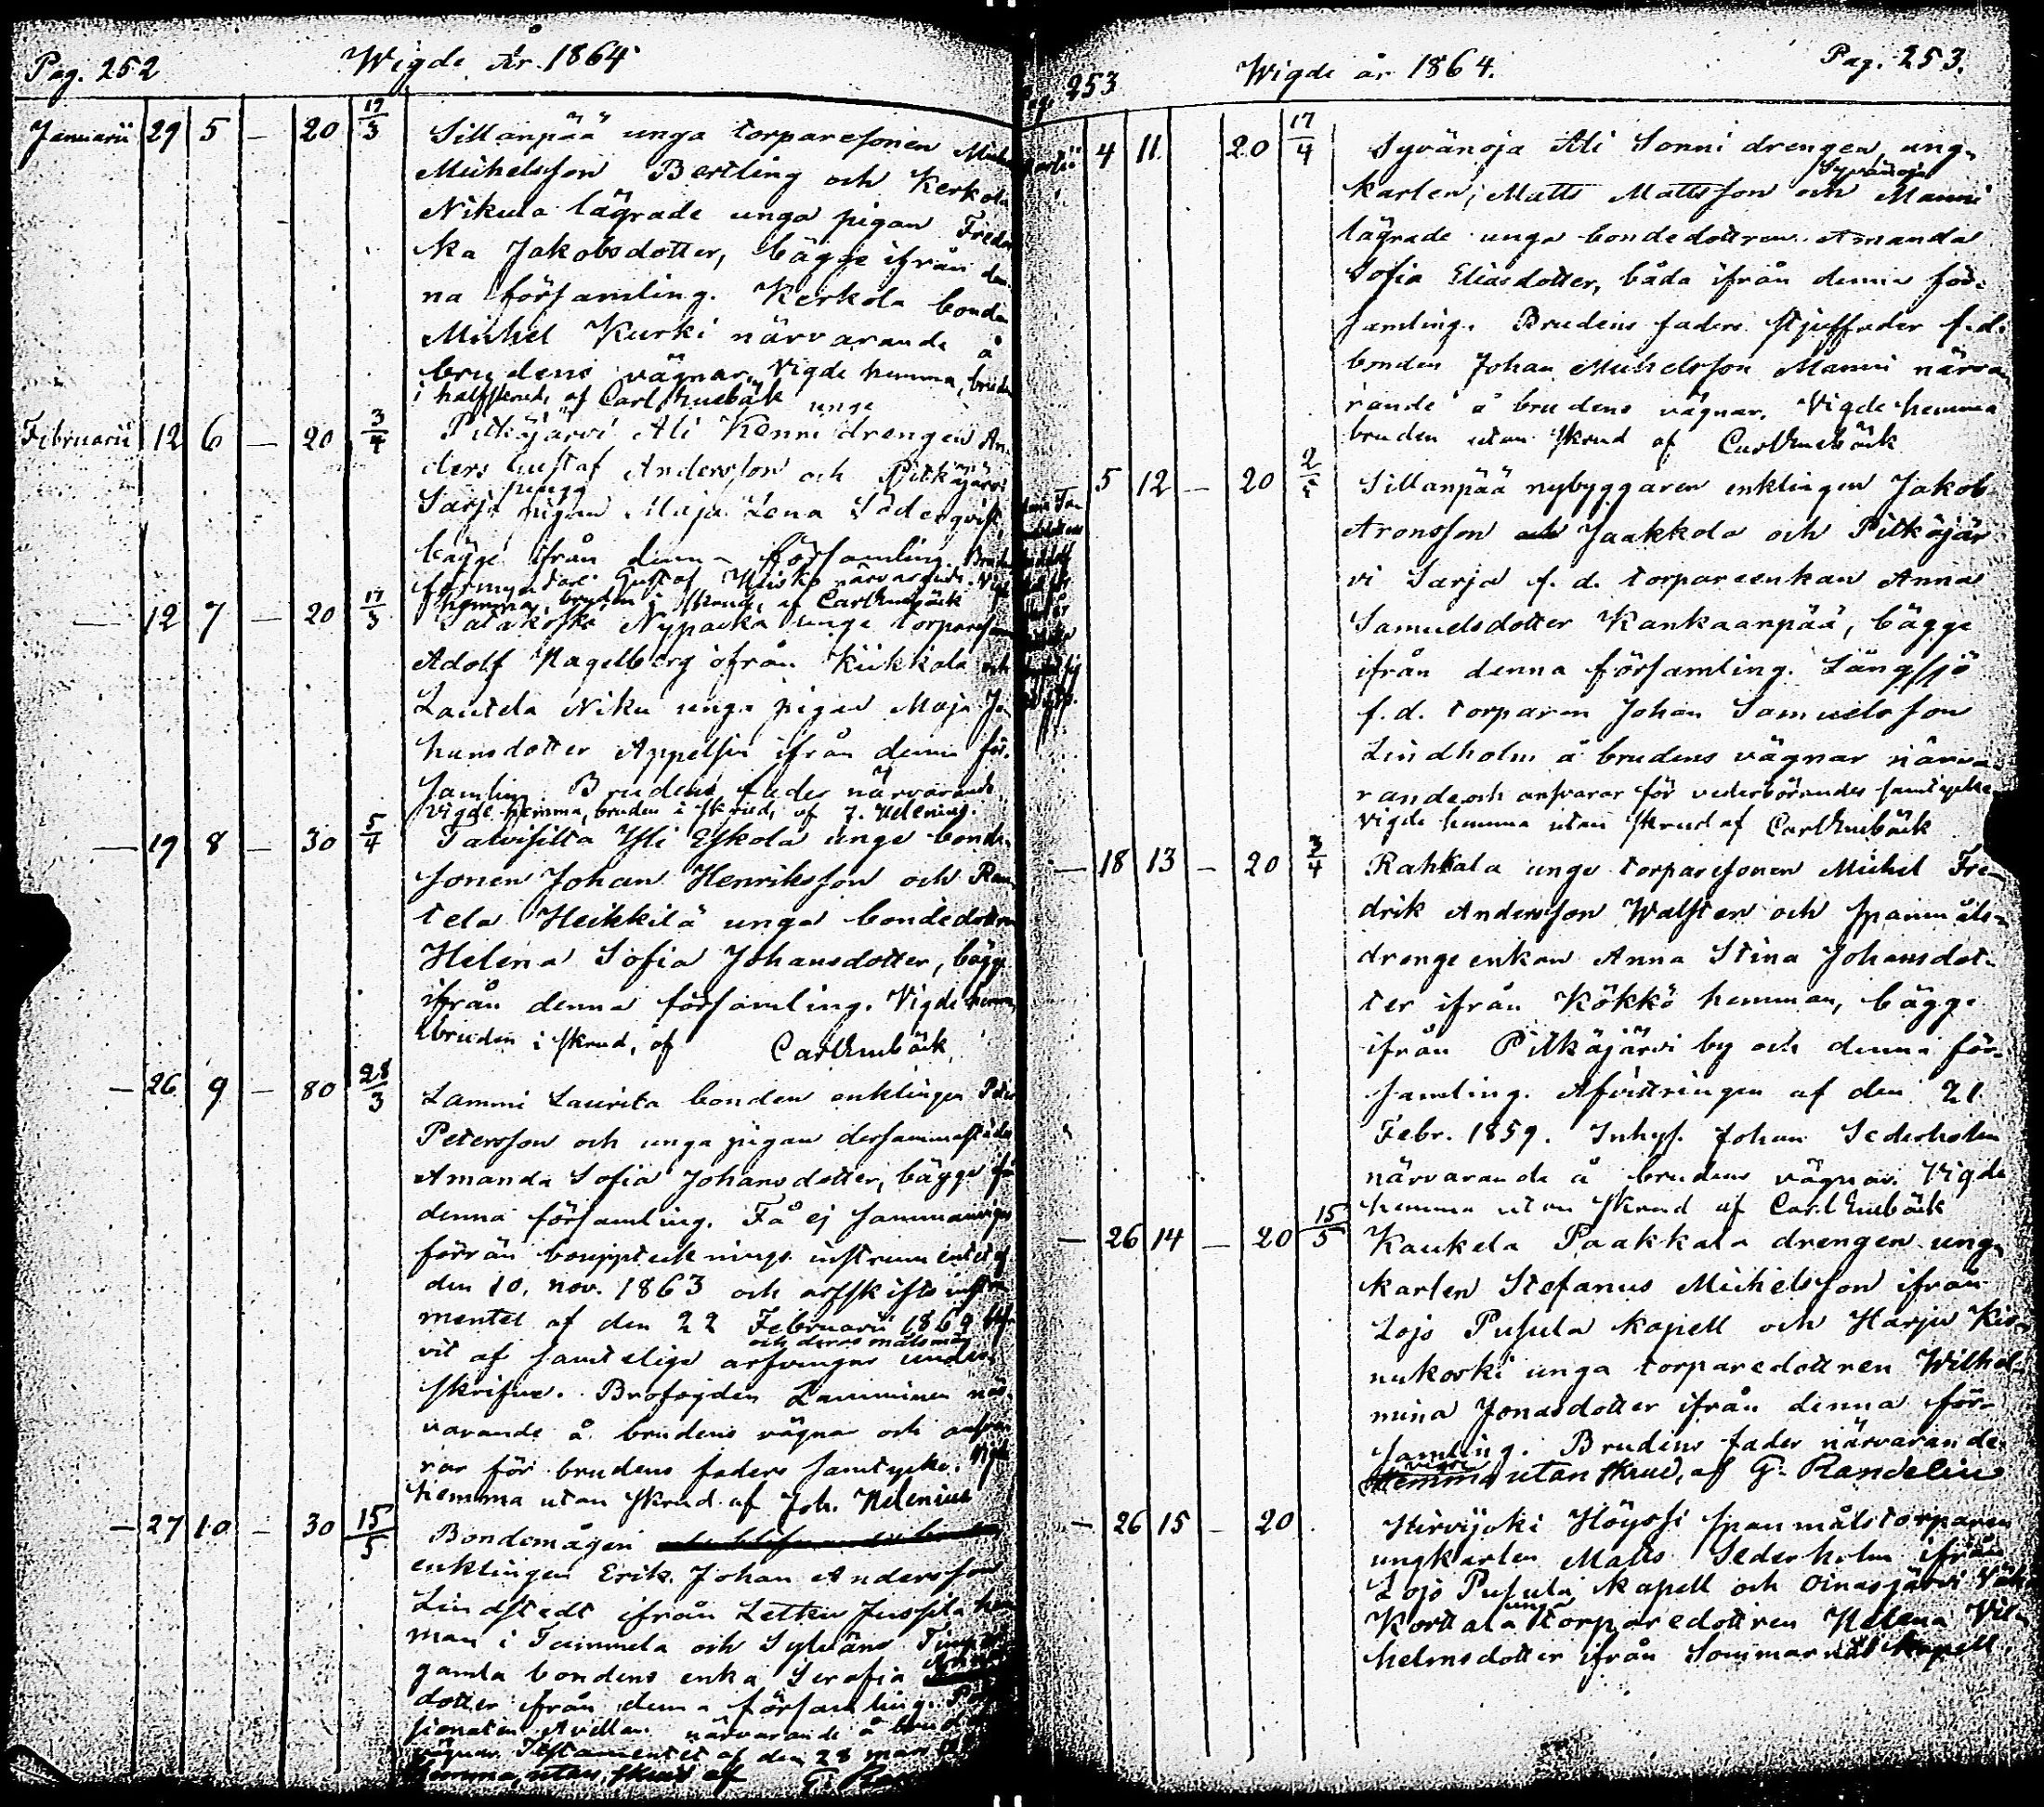 Pag. 252 Wigde År 1864
Januarii 29 5 — 20 17/3 Sillanpää unga torparesonen
Michelsson Bertling och Kerkola
Nikula lägrade unga pigan Fredri
ka Jakobsdotter, bägge ifrån den
na församling. Kerkola bonden
Michel Kurki närvarande å
brudens vägnar. Vigde hemma, bruden
i halfskrud, af Carl Enebäck
Februarii 12 6 — 20 3/4 Pitkäjärvi Ali Kenni drengen unge An
ders Gustaf Andersson och Pitkäjärvi
Sarja pigan Maja Lena Söderqvist,
bägge ifrån denna församling. Brudens
förmyndare Gustaf Heisko närvarande. Vigde
hemma, bruden i skrud, af Carl Enebäck
— 12 7 — 20 17/3 Satakoski Nypacka unge torparesonen
Adolf Nagelberg ifrån Kiikkala och
Lautela Niku unga pigan Maja Jo
hansdotter Appelsin ifrån denna för
samling. Brudens fader närvarande
Vigde hemma, bruden i skrud, af J. Helenius.
— 19 8 — 30 5/4 Talvisilta Yli Eskola unge bonde
sonen Johan Henriksson och Ran
tela Heikkilä unga bondedottren
Helena Sofia Johansdotter, bägge
ifrån denna församling. Vigde hemma
bruden i skrud, af Carl Enebäck
— 26 9 — 80 28/3 Lammi Laurila bonden enklingen Peter
Petersson och unga pigan dersammastädes
Amanda Sofia Johansdotter, bägge från
denna församling. Få ej sammanvigas
förrän bouppteckningsinstrumentet af
den 10. nov. 1863 och arfskiftsinstru
mentet af den 22 Februarii 1864 blif
vit af samtelige arfvingar och deras målsmän under
skrifne. Brofogden Lamminen när
varande å brudens vägnar och ansva
rar för brudens faders samtycke. Vigde
hemma utan skrud af Joh. Helenius
— 27 10 — 30 15/5 Bondemågen
enklingen Erik Johan Andersson
Lindstedt ifrån Letku Jussila hem
man i Tammela och Sylväns
gamla bondens enka Serafia
dotter ifrån denna församling.
närvarande å brudens
vägnar. Testamentet af den 28 mars
hemma, utan skrud af
Pag. 253 Wigde år 1864. Pag. 253.
Martii 4 11 20 17/4 Syvänoja Ali Sonni drengen, ung-
karlen, Matts Mattsson och Syvänoja Manni
lägrade unga bondedottren Amanda
Sofia Eliasdotter, båda ifrån denna för-
samling. Brudens faders styffader f.d.
bonden Johan Michelsson Manni närva
rande å brudens vägnar. Vigde hemma
bruden utan skrud af Carl Enebäck
— 5 12 — 20 Sillanpää nybyggaren enklingen Jakob
Aronsson Jaakkola och Pitkäjär
vi Sarja f. d. torpareenkan Anna
Samuelsdotter Kankaanpää, bägge
ifrån denna församling. Långsjö
f. d. torparen Johan Samuelsson
Lindholm å brudens vägnar närva
rande och ansvarar för vederbörandes samtycke
Vigde hemma utan skrud af Carl Enebäck
— 18 13 — 20 3/4 Rahkala unge torparesonen Michel Fre-
drik Andersson Walsten och spanmåls-
drengeenkan Anna Stina Johansdot-
ter ifrån Kökkö hemman, bägge
ifrån Pitkäjärvi by och denna för-
samling. Afvittringen af den 21
Febr. 1859. Inhys. Johan Sederholm
närvarande å brudens vägnar. Vigde
hemma utan skrud af Carl Enebäck
— 26 14 — 20 15/5 Kaukela Paakkala drengen ung-
karlen Stefanus Michelsson ifrån
Lojo Pusula kapell och Harju Kir-
nukoski unga torparedottren Wilhel-
mina Jonasdotter ifrån denna för-
samling. Brudens fader närvarande.
Vigde hemma utan skrud, af G. Randelin
— 26 15 — 20 Hirvijoki Höyssi spanmålstorparen
ungkarlen Matts Sederholm ifrån
Lojo Pusula kapell och Oinasjärvi
Korttala unga torparedottren Helena Vil-
helmsdotter ifrån Sommarnäs kapell.